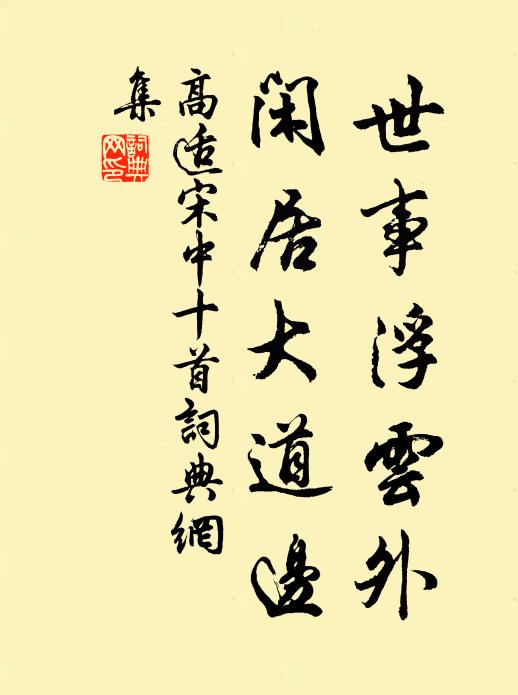 世事浮雲外
閑居大道邊
高适宋中十首詞典網
集
詞典網印